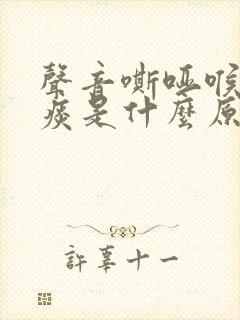 聲音嘶啞喉
痰是什麼原
許辜十一